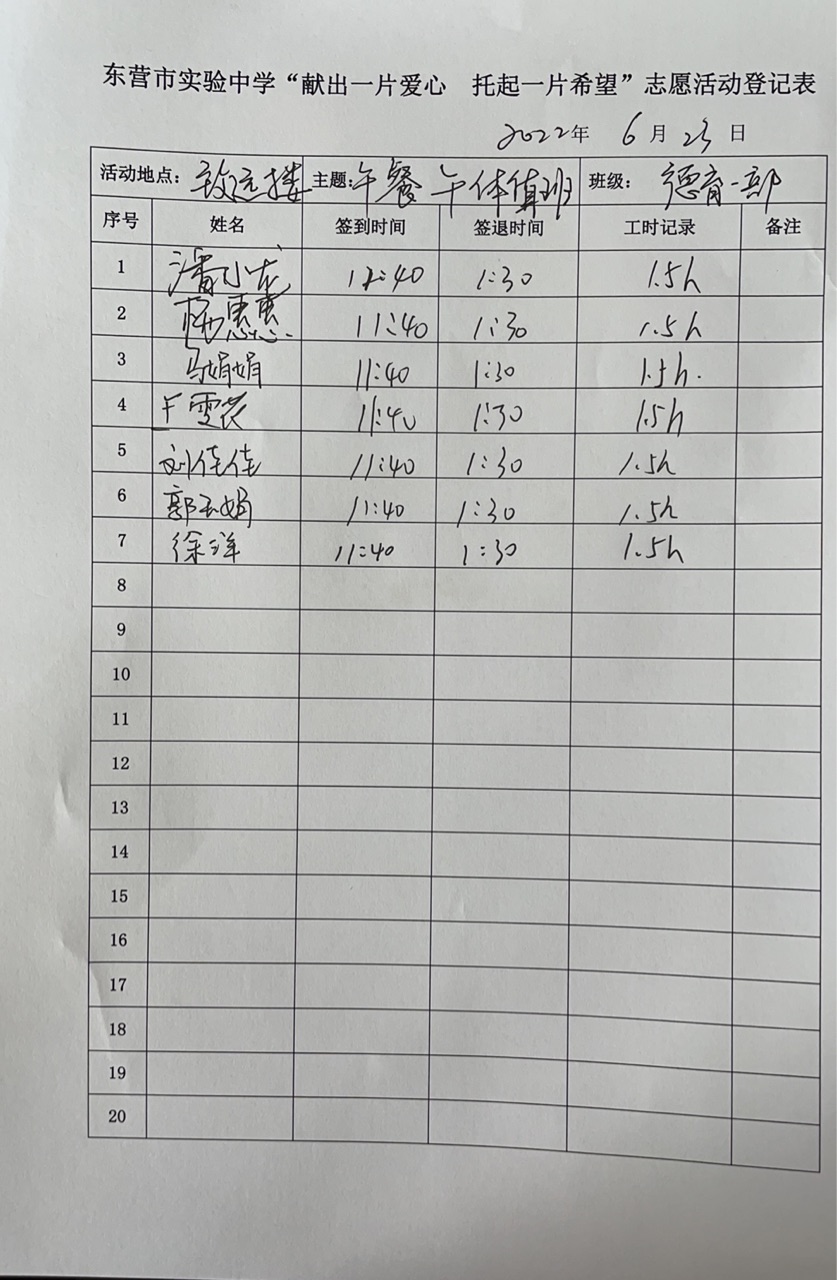 东营市实验中学“献出一片爱心 托起一片希望”志愿活动登记表
2022年 6月 23日
活动地点：致远楼 主题：午餐午休值班 班级：德育一部
序号 姓名 签到时间 签退时间 工时记录 备注
1 潘小龙 11:40 1:30 1.5h
2 杨惠惠 11:40 1:30 1.5h
3 马娟娟 11:40 1:30 1.5h.
4 雪花 11:40 1:30 1.5h
5 刘佳佳 11:40 1:30 1.5h
6 郭玉娟 11:40 1:30 1.5h
7 徐洋 11:40 1:30 1.5h
8
9
10
11
12
13
14
15
16
17
18
19
20